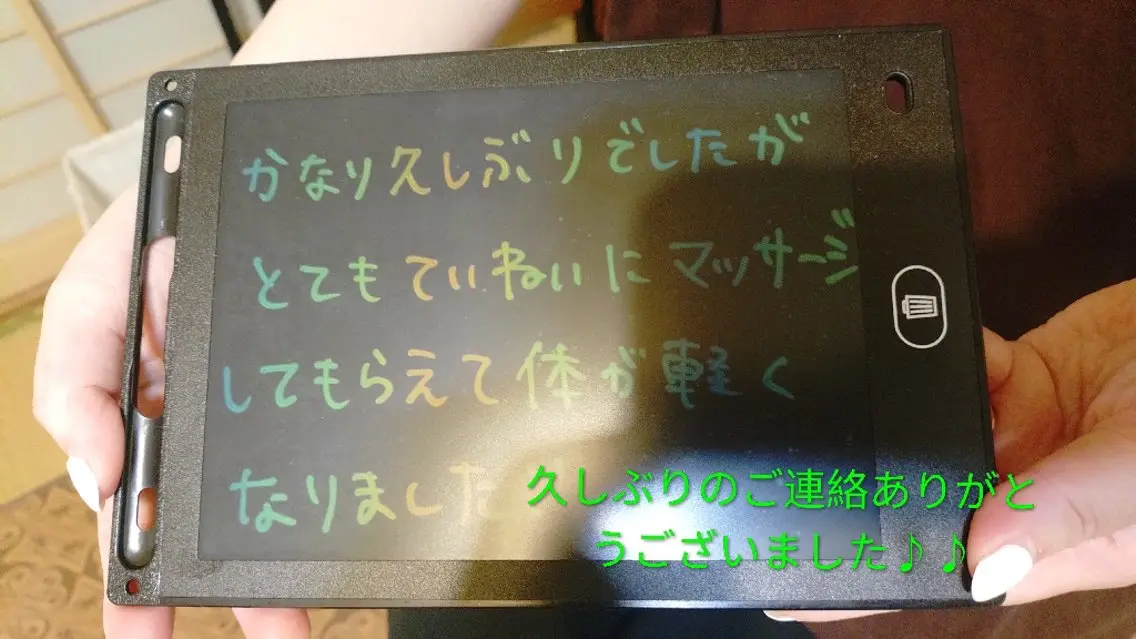 かなり久しぶりでしたが
とてもていねいにマッサージ
してもらえて体が軽く
なりました
久しぶりのご連絡ありがと
うございました♪♪